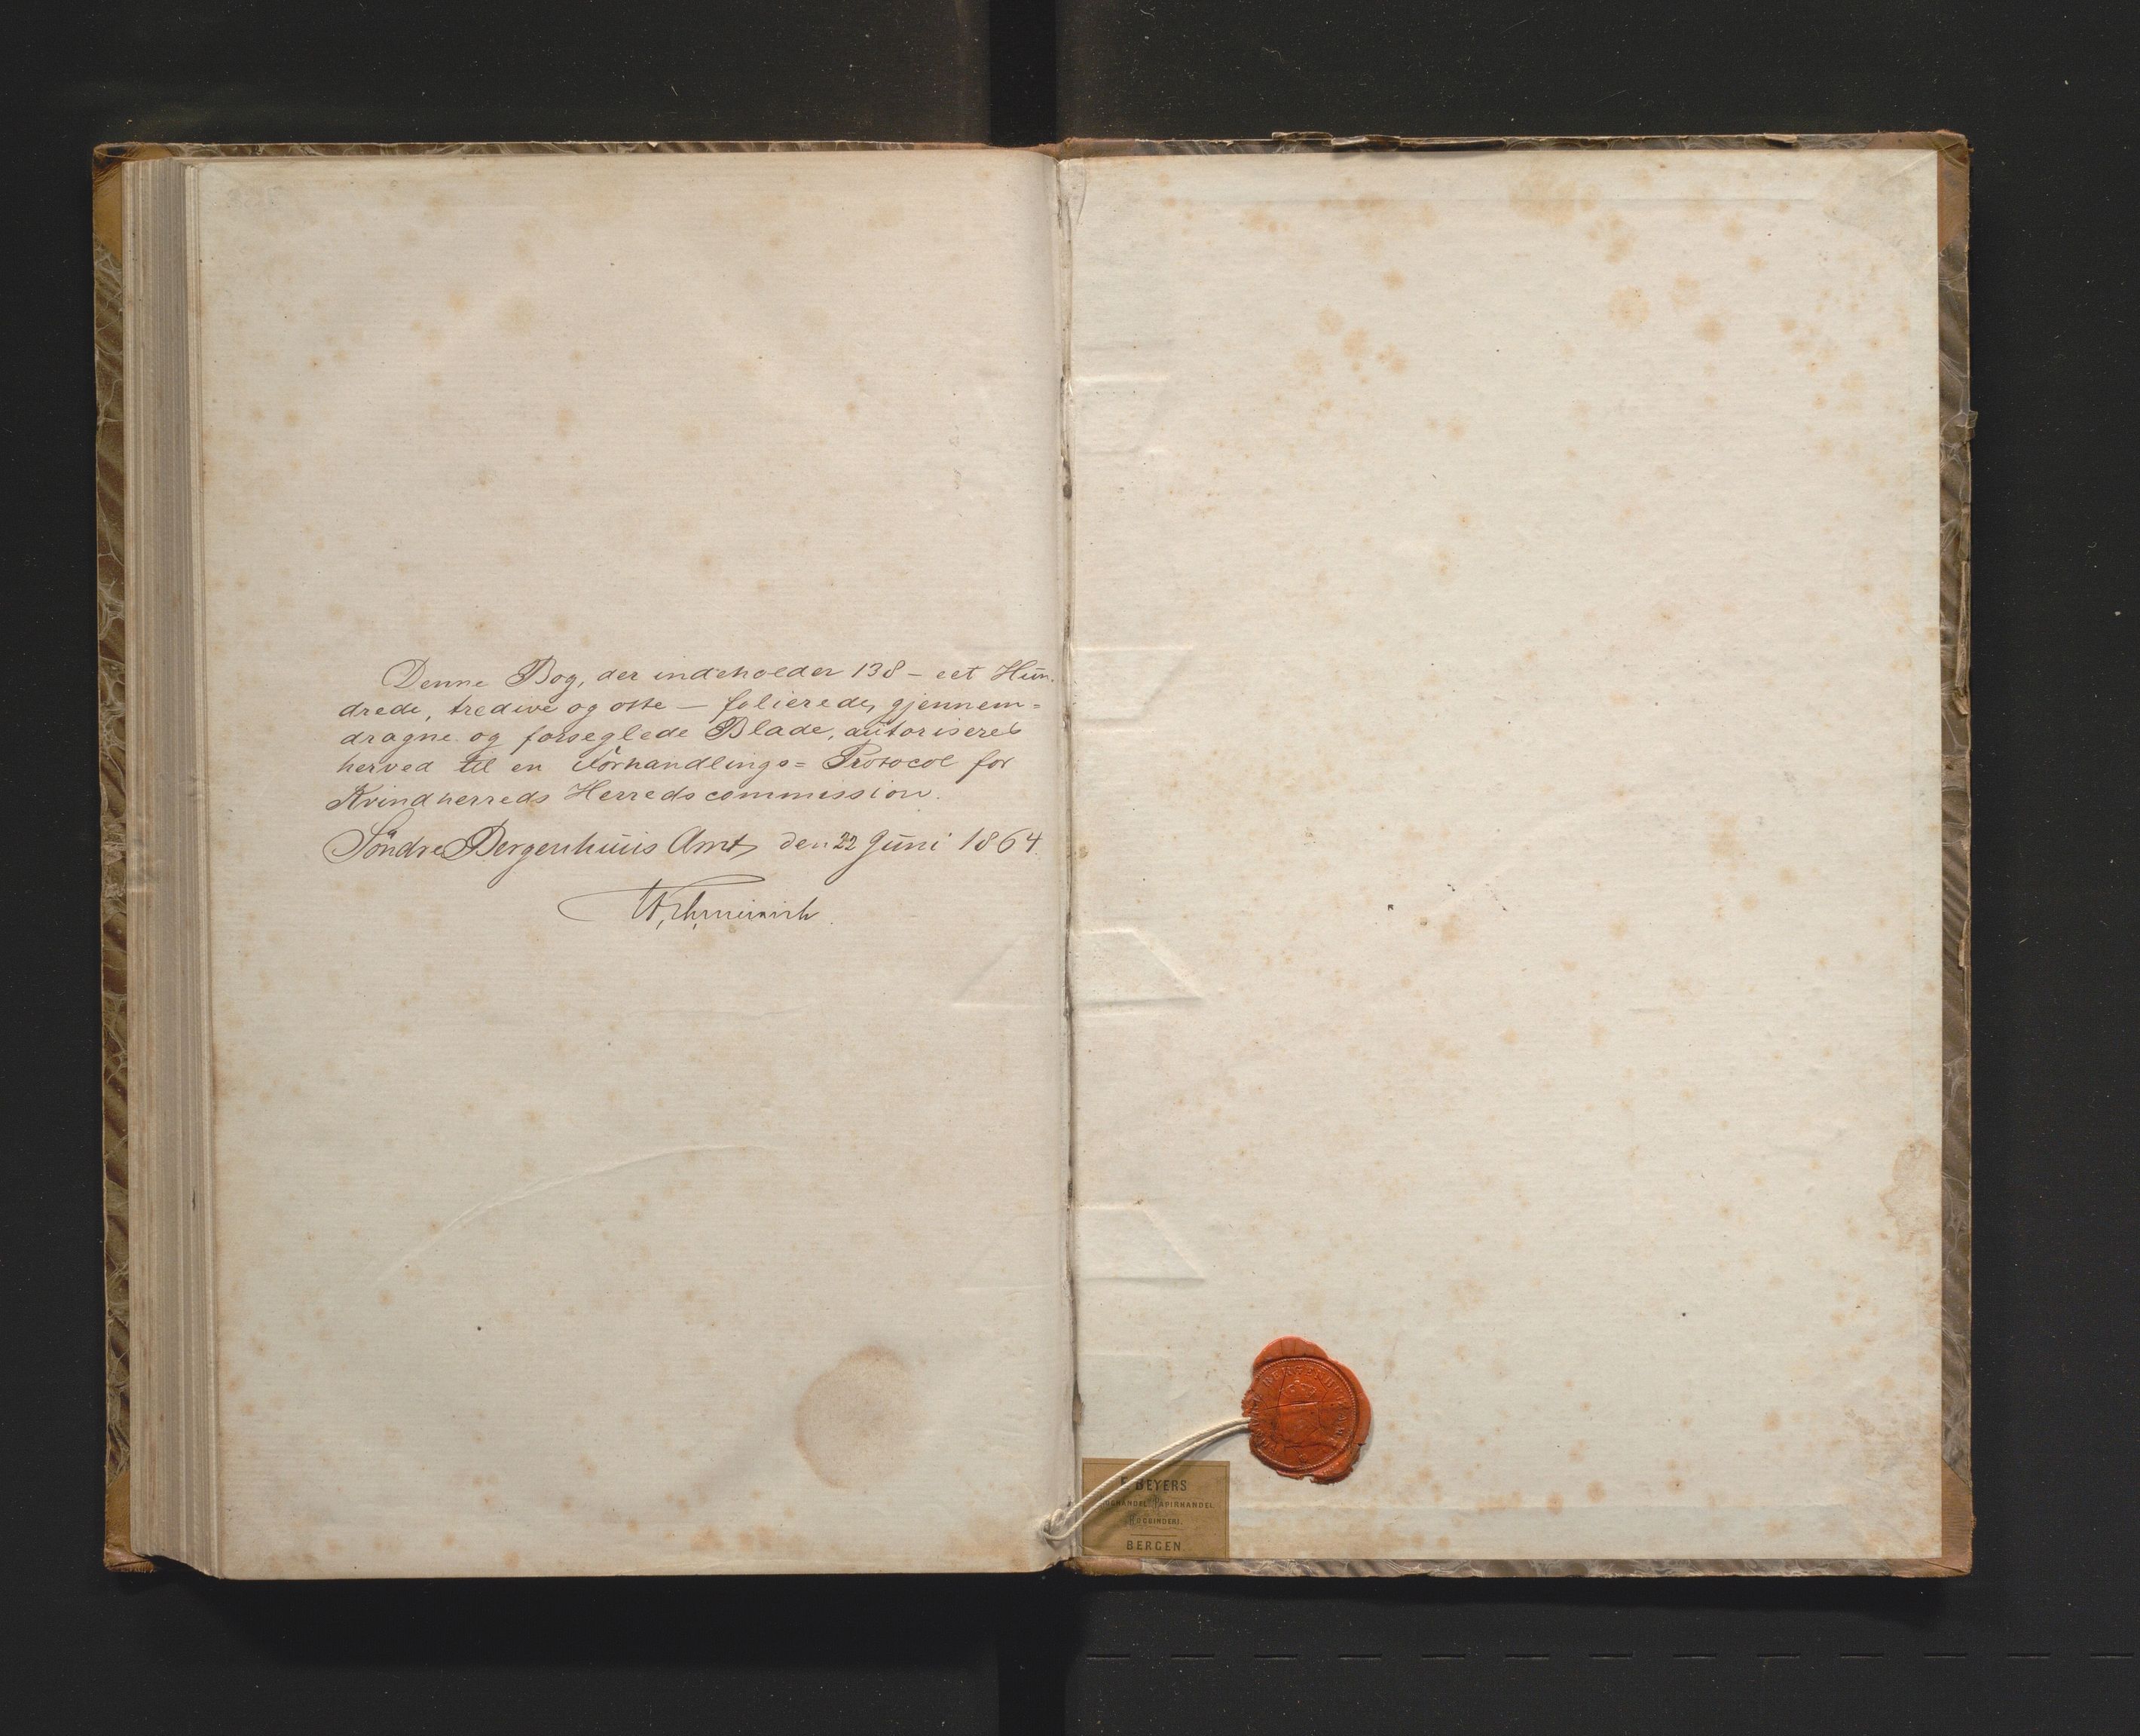 Denne Bog, der indeholder 138 – eet Hun-
drede, tredive og otte – folierede, gjennem=
dragne og forseglede Blade, autoriseres
herved til en Forhandlings= Protocol for
Kvindherreds Herredscommission.
Söndre Bergenhuus Amt, den 22 Juni 1864.
E. BEYERS
BOGHANDEL. PAPIRHANDEL
BOGBINDERI.
BERGEN